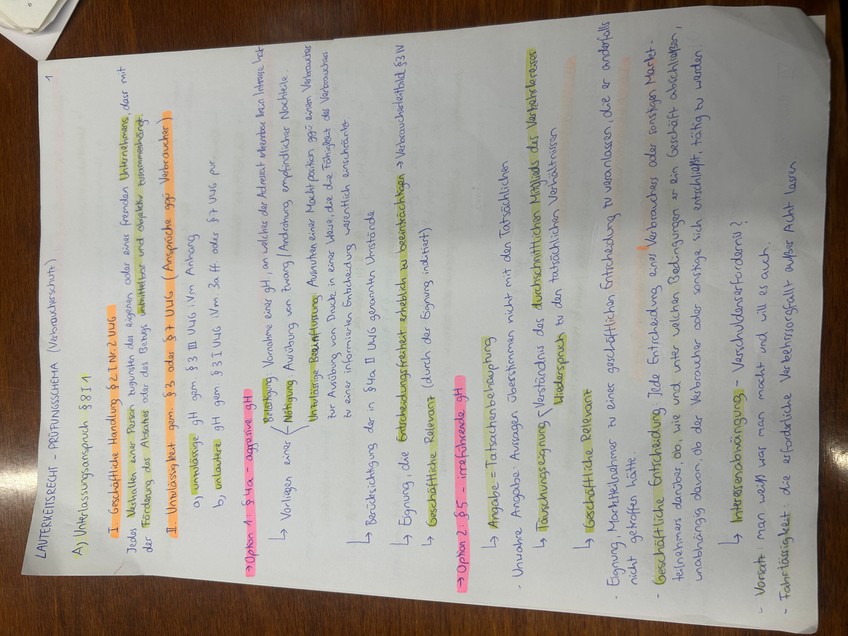 LAUTERKEITSRECHT - PRÜFUNGSSCHEMA (Verbraucherschutz)
1
A) Unterlassungsanspruch § 8 I 1
I. Geschäftliche Handlung § 2 I Nr. 2 UWG
Jedes Verhalten einer Person zugunsten des eigenen oder eines fremden Unternehmens, dass mit
der Förderung des Absatzes oder des Bezugs unmittelbar und objektiv zusammenhängt
II. Unzulässigkeit gem. § 3 oder § 7 UWG (Ansprüche ggü Verbraucher)
a) unzulässige gH gem § 3 III UWG iVm Anhang
b) unlautere gH gem § 3 I UWG iVm 3a ff oder § 7 UWG pur
→ Option 1: § 4a - aggresive gH
↳ Vorliegen einer
Belästigung Vornahme einer gH, an welcher der Adressat erkennbar kein Interesse hat
Nötigung Ausübung von Zwang / Androhung empfindlicher Nachteile.
Unzulässige Beeinflussung Ausnutzen einer Machtposition ggü einem Verbraucher
zur Ausübung von Druck in einer Weise, die die Fähigkeit des Verbrauchers
zu einer informierten Entscheidung wesentlich einschränkt
↳ Berücksichtigung der in § 4a II UWG genannten Umstände
↳ Eignung, die Entscheidungsfreiheit erheblich zu beeinträchtigen → Verbraucherleitbild § 3 IV
↳ Geschäftliche Relevanz (durch der Eignung indiziert)
→ Option 2: § 5 - irreführende gH
↳ Angabe = Tatsachenbehauptung
- Unwahre Angabe: Aussagen übereinstimmen nicht mit den Tatsächlichen
↳ Täuschungseignung
Verständnis des durchschnittlichen Mitglieds des Verkehrskreises
Wiederspruch zu den tatsächlichen Verhältnissen
↳ Geschäftliche Relevanz
- Eignung, Marktteilnehmer zu einer geschäftlichen Entscheidung zu veranlassen, die er anderfalls
nicht getroffen hätte.
- Geschäftliche Entscheidung Jede Entscheidung eines Verbrauchers oder sonstigen Markt-
teilnehmers darüber, ob, wie und unter welchen Bedingungen er ein Geschäft abschließen,
unabhängig davon, ob der Verbraucher oder sonstige sich entschließt, tätig zu werden.
↳ Interessenabwägung - Verschuldenserfordernis?
- Vorsatz: man weiß was man macht und will es auch.
- Fahrlässigkeit die erforderliche Verkehrssorgfalt außer Acht lassen